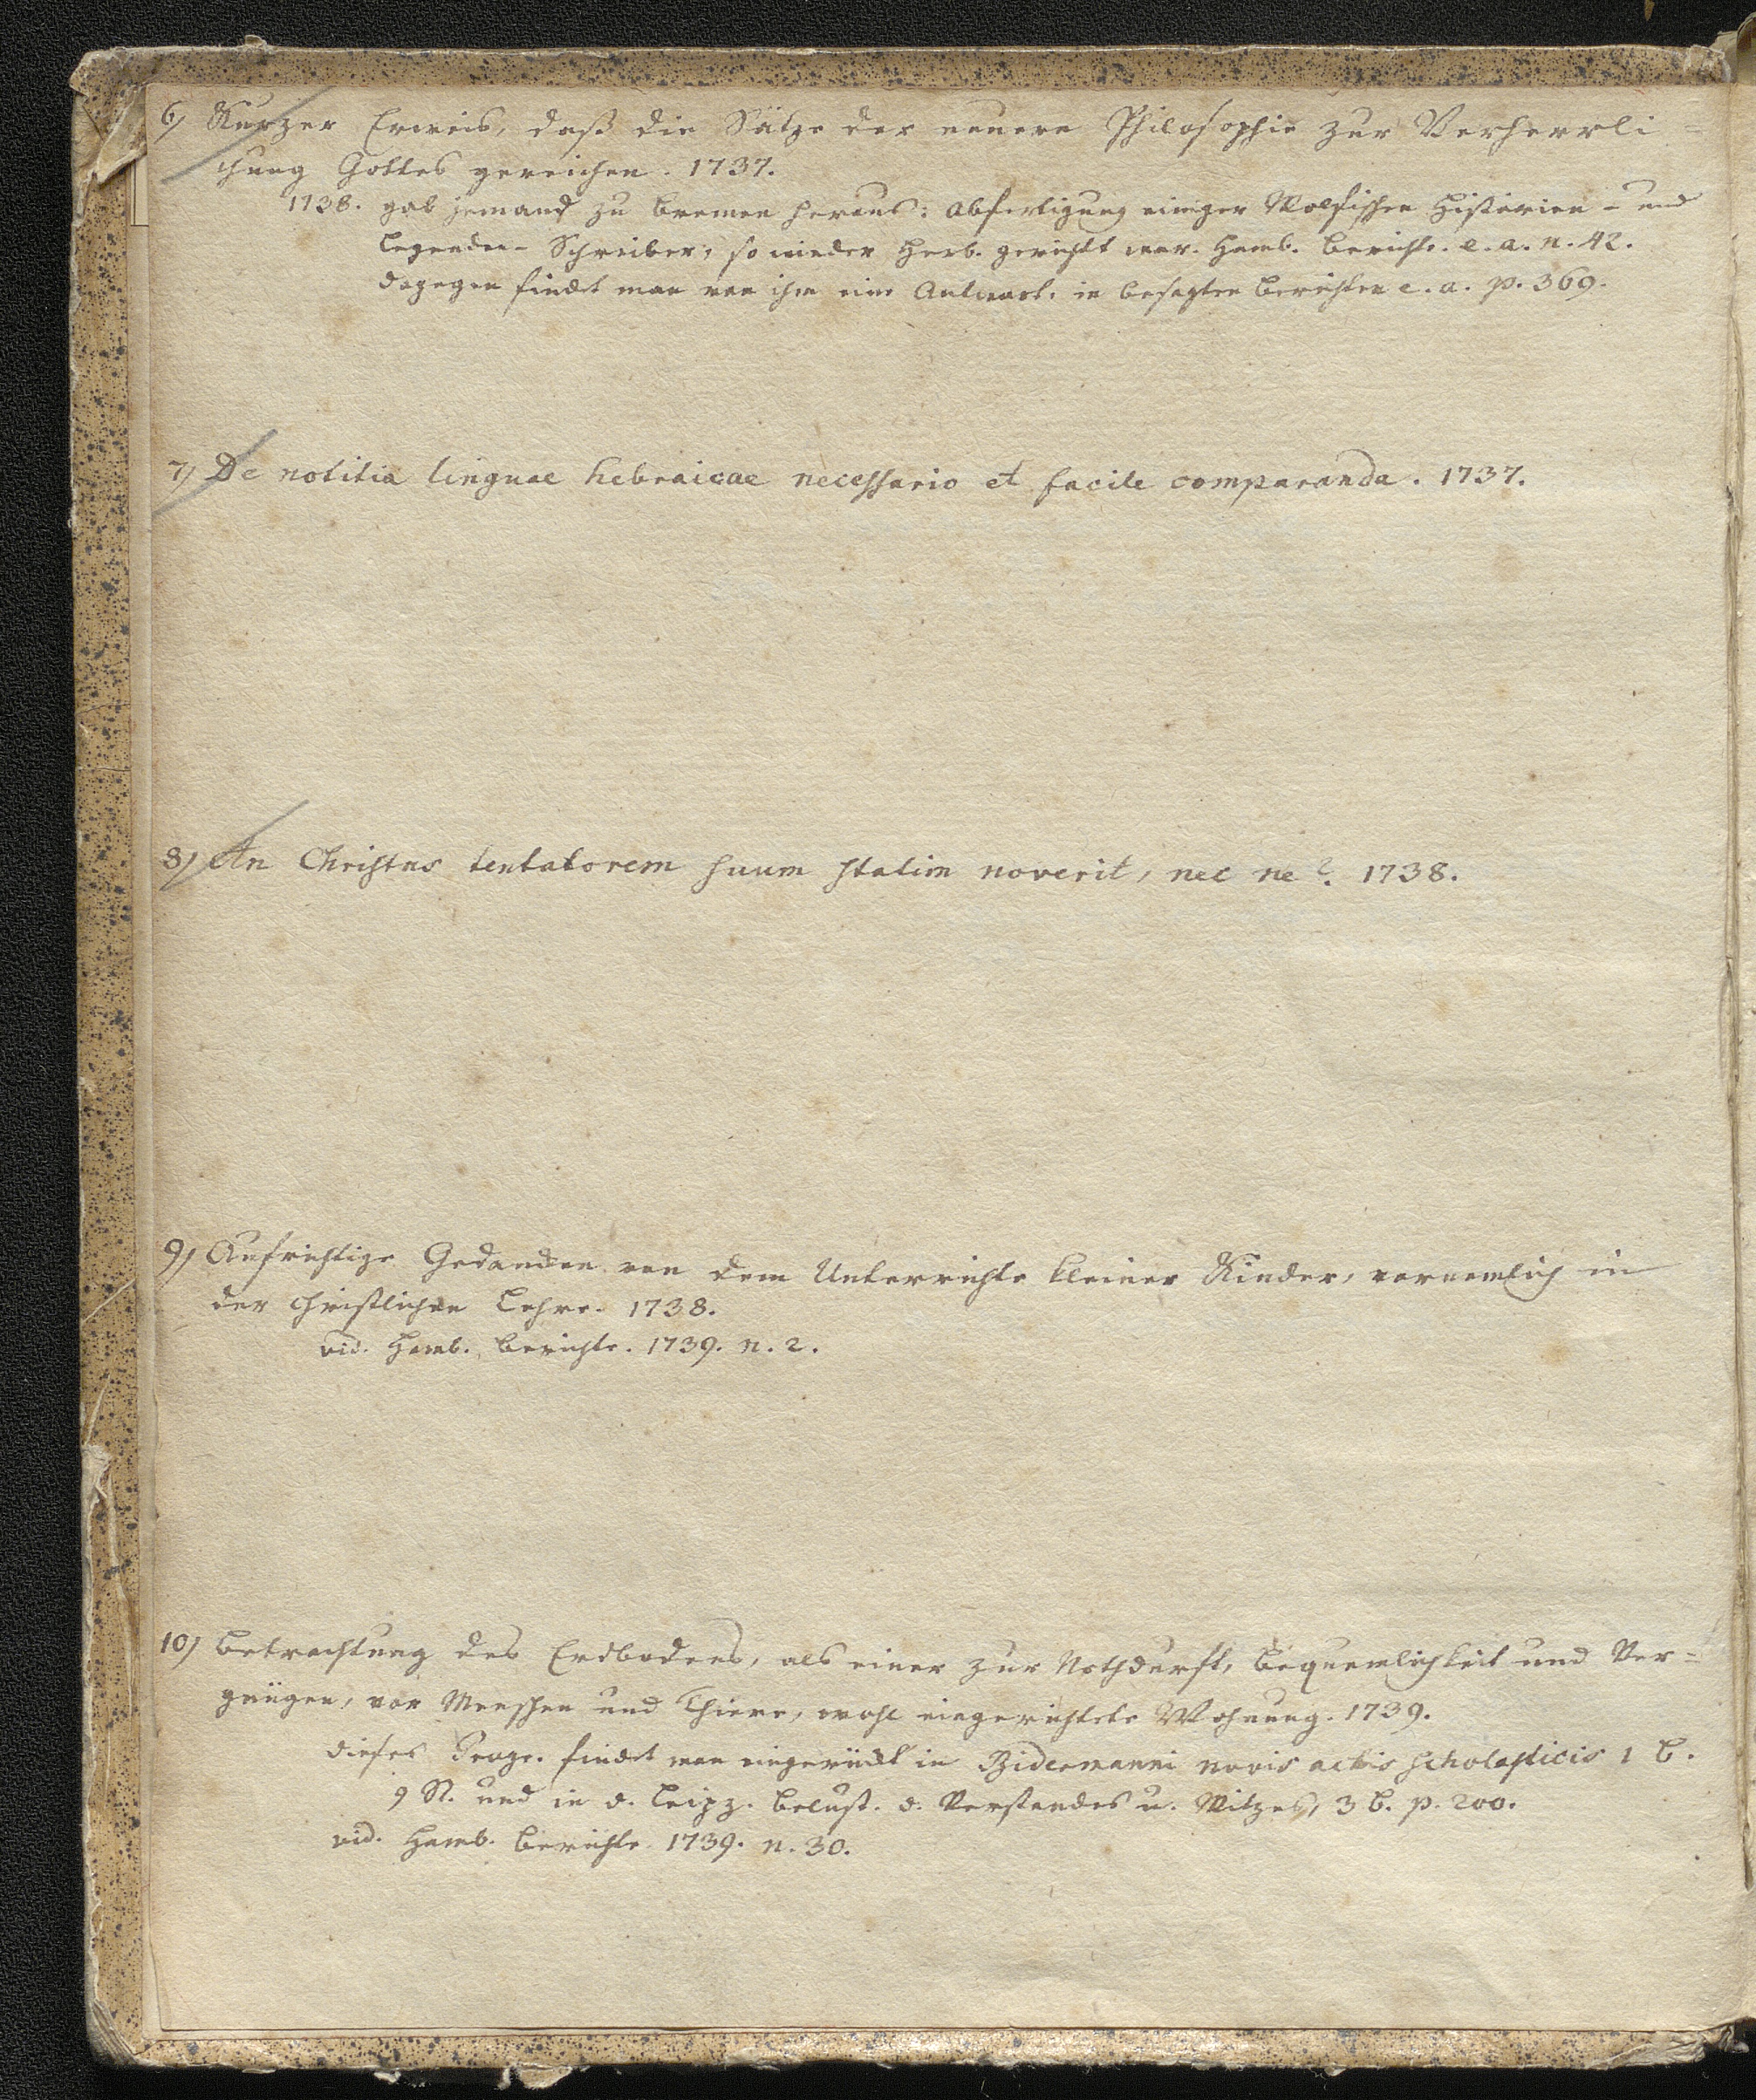 6) Kurzer Erweis, daß die Sätze der neuern Philosophie zur Verherrli=
chung Gottes gereichen. 1737.
1738. gab jemand zu Bremen heraus: Abfertigung einiger Wolfischen Historien- und
Legenden-Schreiber, so wieder Herb. gericht war. Hamb. Berichte. e. a. n. 42.
dagegen findet man von ihm eine Antwort, in besagten Berichten e. a. p. 369.
7) De notitia linguae hebraicae necessario et facile comparanda. 1737.
8) An Christus tentatorem suum statim noverit, nec ne? 1738.
9) Aufrichtige Gedancken von dem Unterrichte kleiner Kinder, vornemlich in
der christlichen Lehre. 1738.
vid. Hamb. Berichte. 1739. n. 2.
10) Betrachtung des Erdbodens, als einer zur Nothdurft, Bequemlichkeit und Ver=
gnügen, vor Menschen und Thiere, wohl eingerichtete Wohnung. 1739.
dieses Progr. findet man eingerückt in Bidermanni novis actis scholasticis 1 B.
9 St. und in d. Leipz. Belust. d. Verstandes u. Witzes, 3 B. p. 200.
vid. Hamb. Berichte 1739. n. 30.